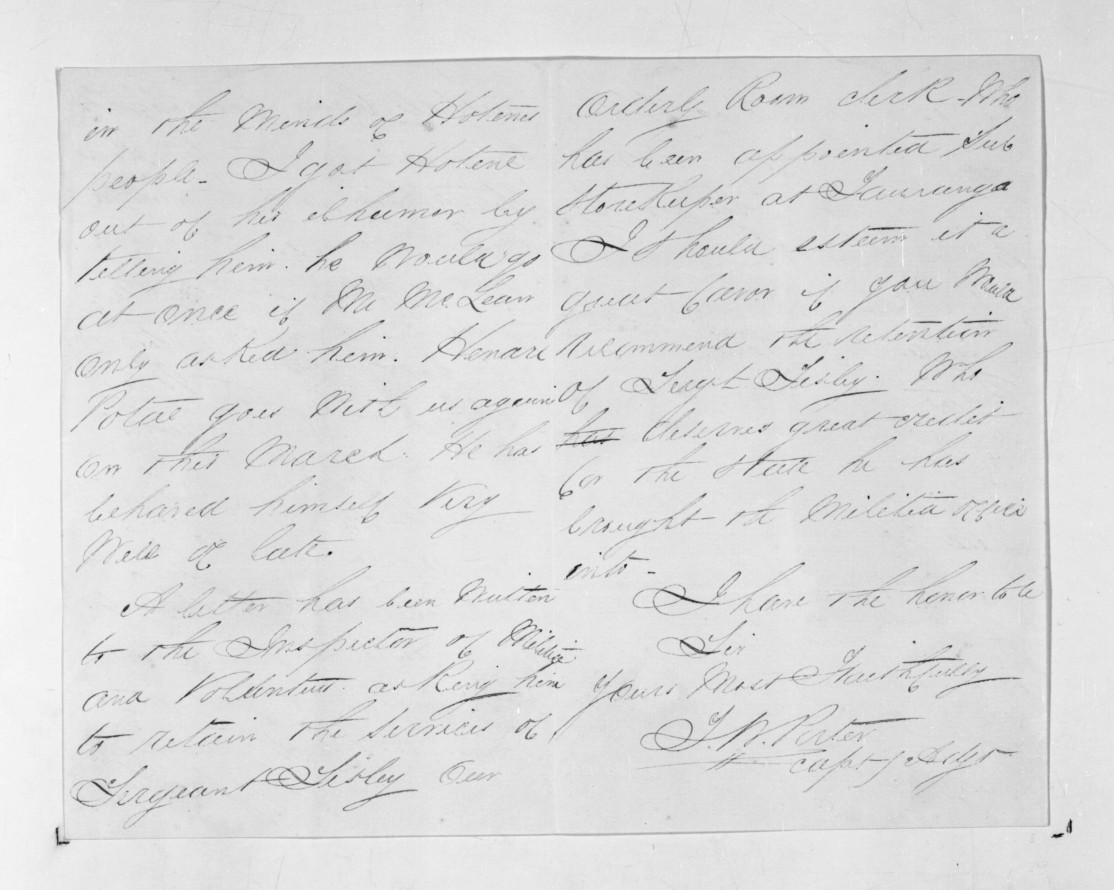 in the minds of Hotenes
people. I got Hotene
out of his ilhumor by
telling him. he would go
at once if Mr McLean
only asked him. Henare
Potae goes with us again
on this march. He has
behaved himself very
well of late.
A letter has been written
to the Inspector of Militia
and Volunteers. asking him
to retain the services of
Sergeant Sisley Our
Orderly Room clerk - Who
has been appointed Sub
Storekeeper at Tauranga
I should esteem it a
great favor if you would
recommend the retention
of Sergt Sisley. Who
has deserves great credit
for the state he has
brought the Militia office
into -
I have the honor to be
Sir
Yours Most Faithfully
T. W. Porter
Capt & Adjt